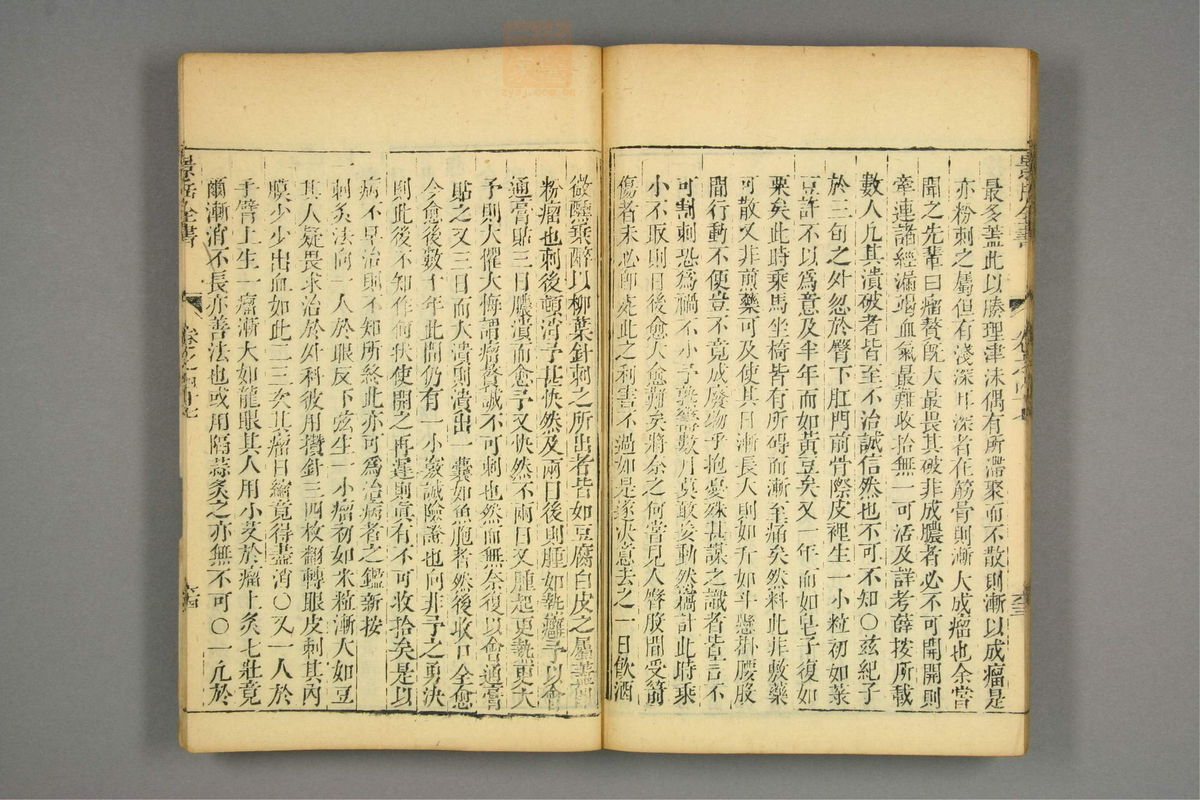 最多蓋此以腠理津沫偶有所滯聚而不散則漸以成瘤是
亦粉刺之屬但有淺深耳深者在筋骨則漸大成瘤也余嘗
聞之先輩曰瘤贅既大最畏其破非成膿者必不可開開則
牽連諸經漏竭血氣最難收拾無一可活及詳考薛按所載
數人凡其潰破者皆至不治誠信然也不可不知〇茲紀予
於三旬之外忽於臂下肛門前骨際皮裡生一小粒初如菉
豆許不以爲意及半年而如黃豆矣又一年而如皂子復如
栗矣此時乘馬坐椅皆有所碍而漸至痛矣然料此非敷藥
可散又非煎藥可及使其日漸長大則如升如斗懸掛腰股
間行動不便豈不竟成廢物乎抱憂殊甚謀之識者皆言不
可割刺恐爲禍不小予熟籌數月莫敢妄動然窃計此時乘
小不取則日後愈大愈難矣將奈之何嘗見人臍股間受箭
傷者未必即死此之利害不過如是遂決意去之一日飲酒
微醺乘醉以柳葉針刺之所出者皆如豆腐白皮之屬蓋即
粉瘤也刺後頓消予甚快然及兩日後則腫如熱癰予以會
通膏貼三日膿潰而愈予又快然不兩日又腫起更熱更大
予則大懼大悔謂瘤贅誠不可刺也然而無奈復以會通膏
貼之又三日而大潰則潰出一囊如魚胞者然後收口全愈
今愈後數十年此間仍有一小窽誠險證也向非予之勇決
則此後不知作何狀使開之再遲則眞有不可收拾矣是以
病不早治則不知所終此亦可爲治病者之鑑新按
一刺灸法向一人於眼皮下弦生一小瘤初如米粒漸大如豆
其人疑畏求治於外科彼用攢針三四枚翻轉眼皮刺其內
膜少少出血如此二三次其瘤日縮竟得盡消〇又一人於
手臂上生一瘤漸大如龍眼其人用小艾於瘤上灸七壯竟
爾漸消不長亦善法也或用隔蒜灸之亦無不可〇一凡於
景岳全書
卷之四十七